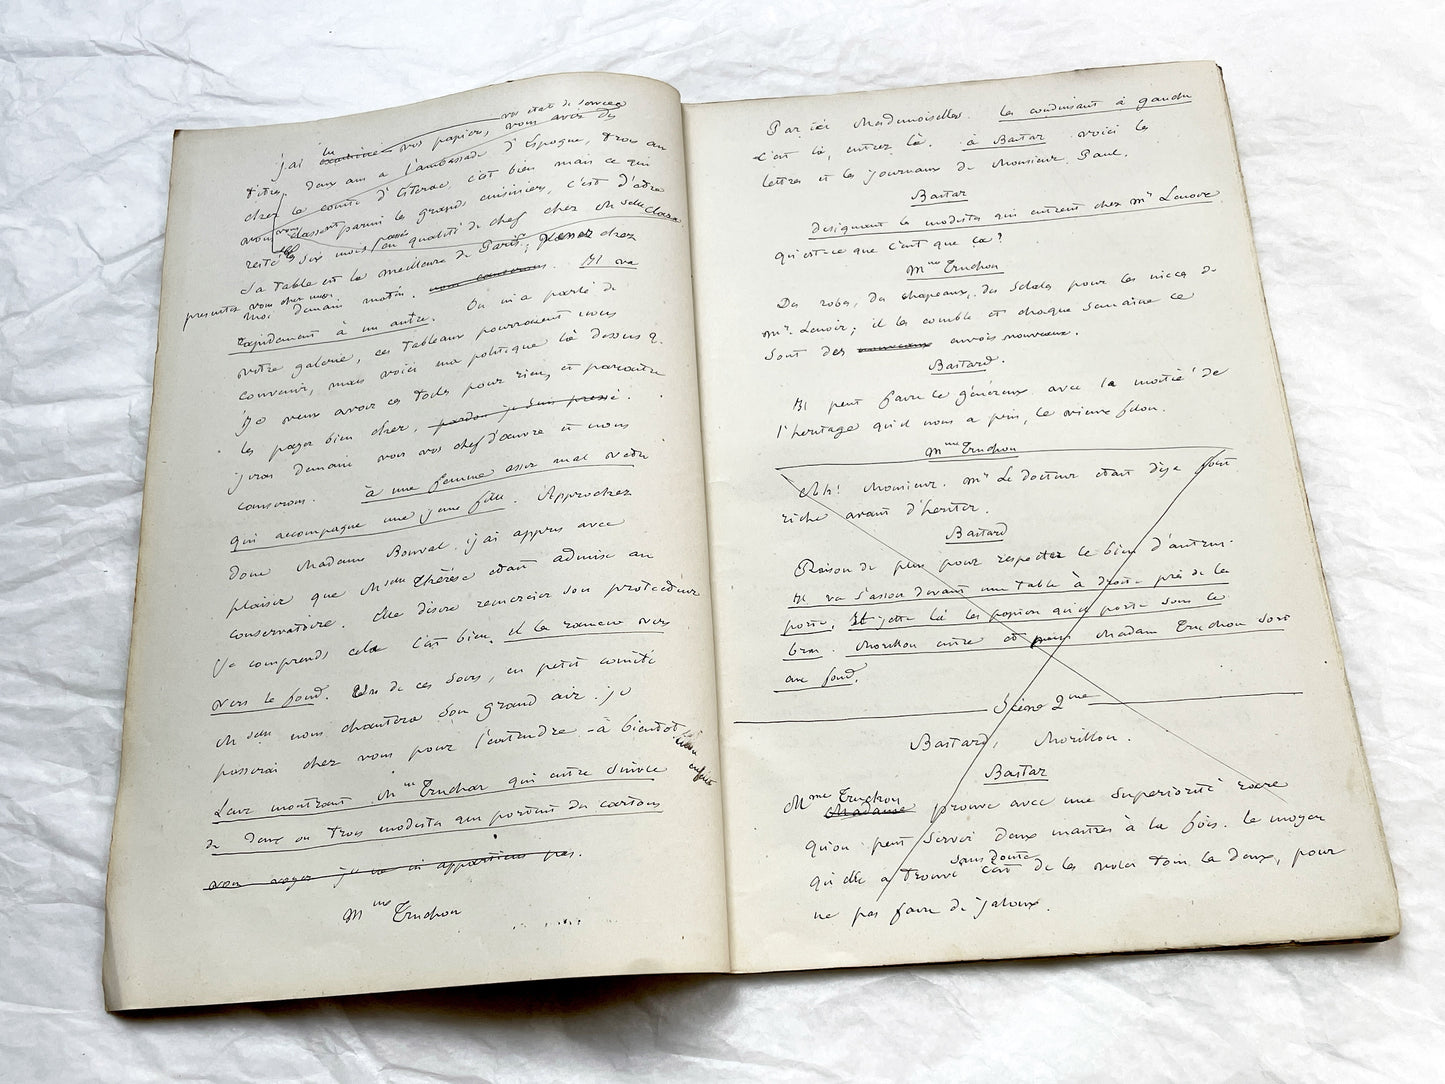 vos états de services
j'ai lu examiné vos papiers, vous avez été
deux ans à l'ambassade d'Espagne, trois ans
chez le comte d' c'est bien mais ce qui
vous classent parmi les grands cuisiniers, c'est d'être
resté six mois en qualité de chef chez Melle Clara
Sa table est la meilleure de Paris, passez chez
presentez vous chez moi
moi demain matin. nous causerons. Il va
rapidement à un autre. On m'a parlé de
votre galerie, ces tableaux pourraient nous
convenir, mais voici ma politique là dessus
Je veux avoir ces toiles pour rien, et paraitre
les payer bien cher, pardon je suis pressé.
j'irai demain voir vos chefs d'œuvre et nous
causerons. à une femme assez mal vetue
qui accompagne une jeune fille. Approchez
donc Madame Bonval. j'ai appris avec
plaisir que Melle Thérèse était admise au
conservatoire. elle désire remercier son protecteur
je comprends cela c'est bien, il la ramène vers
vers le fond. Un de ces soirs, en petit comité
Melle nous chantera son grand air. je
passerai chez vous pour l'entendre - à bientôt
enfant
Leur montrant Mme Truchon qui entre suivie
de deux ou trois modistes qui portent des cartons
vous voyez je ne m'appartiens pas.
Mme Truchon
Par ici Mesdemoiselles. les conduisant à gauche
C'est là, entrez là. à Bastar voici les
lettres et les journaux de Monsieur Paul.
Bastar
designant les modistes qui entrent chez Mr Lenoir.
qu'est-ce que c'est que ça ?
Mme Truchon
Des robes, des chapeaux, des soieries pour les nieces de
Mr. Lenoir ; il les comble et chaque semaine ce
sont des nouveaux envois nouveaux.
Bastard.
Il peut faire le généreux avec la moitié de
l'heritage qu'il nous a pris, le vieux filou.
Mme Truchon
Ah ! Monsieur. Mr Le docteur était déjà fort
riche avant d'heriter.
Bastard
Raison de plus pour respecter le bien d'autrui.
Il va s'asseoir devant une table à droite près de la
porte, Et jette là les papiers qu'il porte sous le
bras. Morillon entre et puis Madame Truchon sort
au fond.
Scène 2me
Bastard, Morillon.
Bastar
Mme Truchon
Madame prouve avec une superiorité rare
qu'on peut servir deux maitres à la fois. le moyen
sans doute
qu'elle a trouvé c'est de les voler tous les deux, pour
ne pas faire de jaloux.